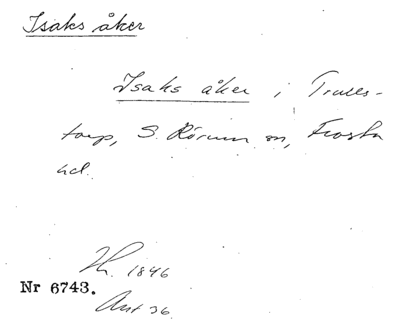 Isaks åker
Isaks åker i Trulls-
torp, S. Rörum sn, Frosta
hd.
Th. 1846
Nr 6743.
Ant 36.